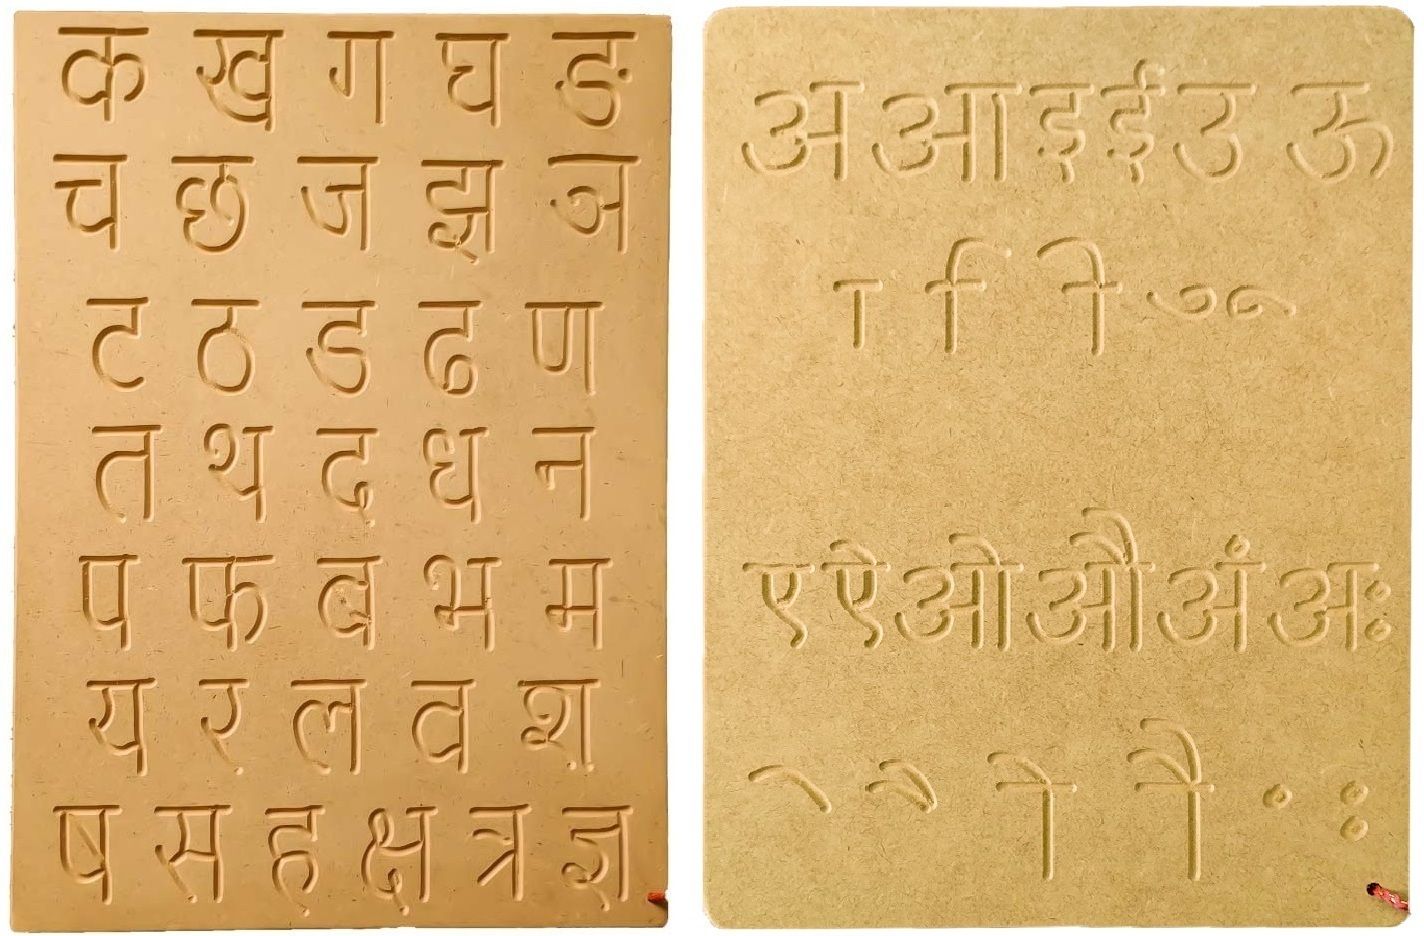 क ख ग घ ङ
च छ ज झ ञ
ट ठ ड ढ ण
त थ द ध न
प फ ब भ म
य र ल व श
ष स ह क्ष त्र ज्ञ
अ आ इ ई उ ऊ
ा ि ी ु ू
ए ऐ ओ औ अं अः
े ै ो ौ ं ः